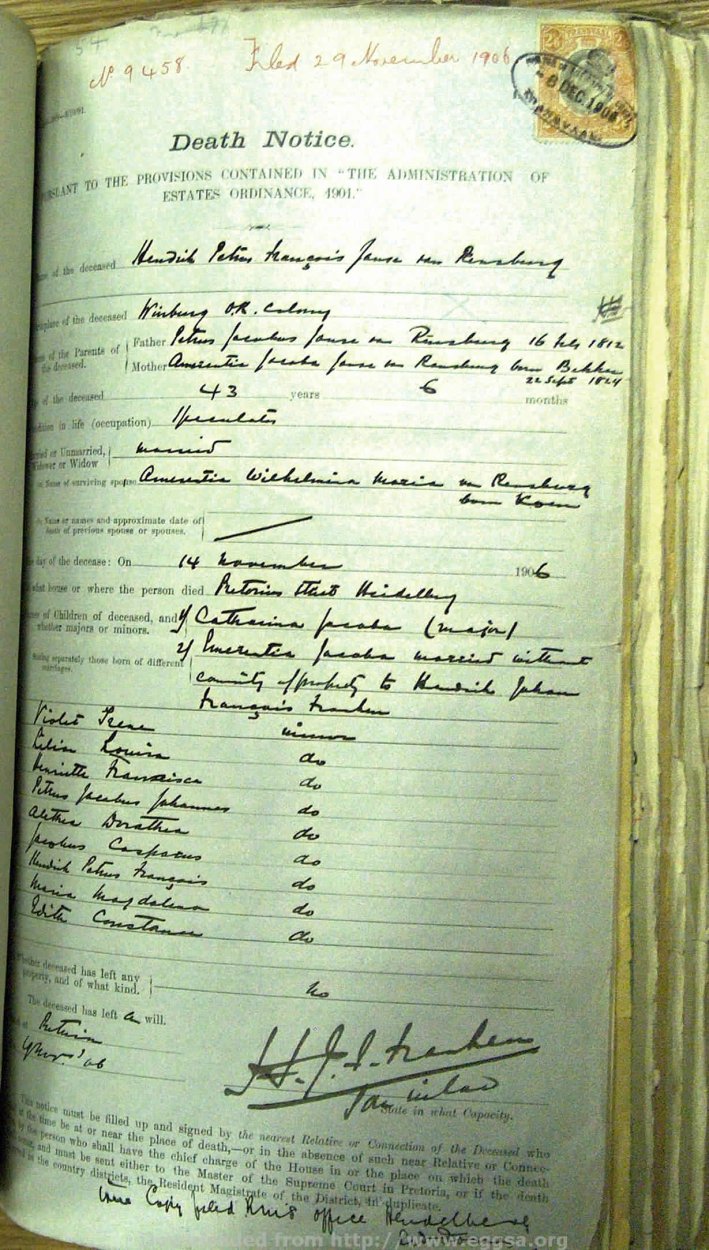 54
No 9458. Filed 29 November 1906
TRANSVAAL
6 DEC 1906
TRANSVAAL
Death Notice.
PURSUANT TO THE PROVISIONS CONTAINED IN "THE ADMINISTRATION OF
ESTATES ORDINANCE, 1901."
of the deceased Hendrik Petrus François Janse van Rensburg
Birthplace of the deceased Winburg O.R. Colony
Names of the Parents of the deceased. Father Petrus Jacobus Janse van Rensburg 16 Feby 1812
Mother Amerentia Jacoba Janse van Rensburg born Bekker
22 Sept 1824
Age of the deceased 43 years 6 months
Condition in life (occupation) Speculator
Married or Unmarried, Widower or Widow married
Name of surviving spouse Amerentia Wilhelmina Maria van Rensburg
born Koen
Name or names and approximate date of
death of previous spouse or spouses.
The day of the decease: On 14 November 1906
At what house or where the person died Pretorius Street Heidelberg
Names of Children of deceased, and
whether majors or minors. 1/ Catharina Jacoba (major)
Stating separately those born of different
marriages. 2/ Emerentia Jacoba married without
community of property to Hendrik Johan
François Franken
Violet Irene minor
Louisa do
Henriette Francisca do
Petrus Jacobus Johannes do
Alethea Dorothea do
Jacobus Casparus do
Hendrik Petrus François do
Maria Magdalena do
Edith Constance do
Whether deceased has left any
property, and of what kind. No
The deceased has left a will.
Dated at Pretoria
Novr '06
H. J. F. Franken
Son in law
State in what Capacity.
This notice must be filled up and signed by the nearest Relative or Connection of the Deceased who
at the time be at or near the place of death,—or in the absence of such near Relative or Connec-
by the person who shall have the chief charge of the House in or the place on which the death
and must be sent either to the Master of the Supreme Court in Pretoria, or if the death
in the country districts, the Resident Magistrate of the District, in duplicate.
True Copy filed RM's office Heidelberg
from http://www.eggsa.org